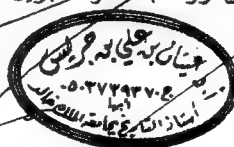 غيثان بن علي بن جريس
ج٠٥٠٣٧٢٩٣٧٠
أبها
أستاذ التاريخ بجامعة الملك خالد